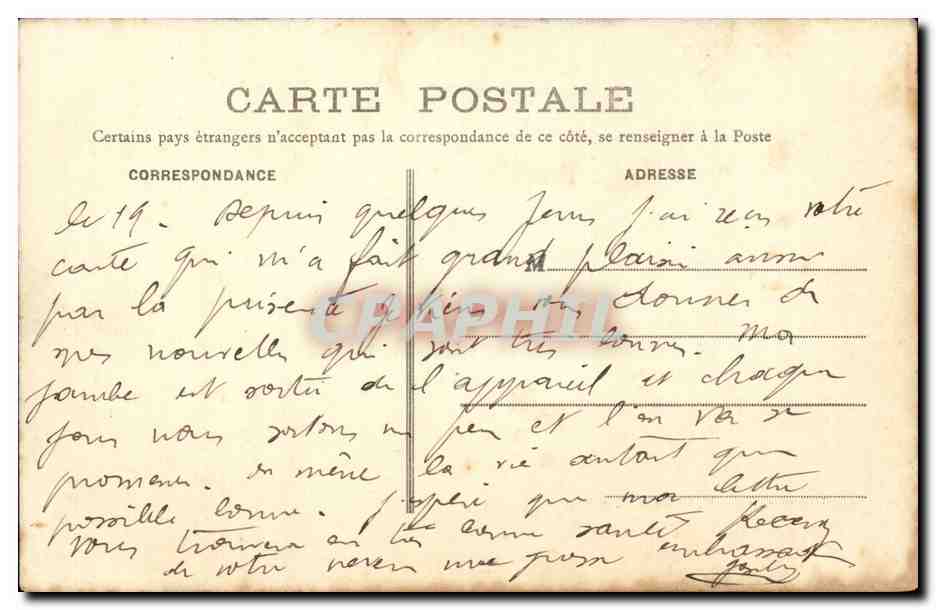 CARTE POSTALE
Certains pays étrangers n'acceptant pas la correspondance de ce côté, se renseigner à la Poste
CORRESPONDANCE
ADRESSE
le 19. Depuis quelques jours j'ai reçu votre
carte qui m'a fait grand plaisir aussi
M
par la présente je viens vous donner de
CPAPHIL
mes nouvelles qui sont très bonnes. Ma
jambe est sortie de l'appareil et chaque
jour nous sortons un peu et l'on va se
promener. on mène la vie autant que
possible bonne. J'espère que ma lettre
vous trouvera en très bonne santé. Recevez
de votre neveu une grosse embrassade